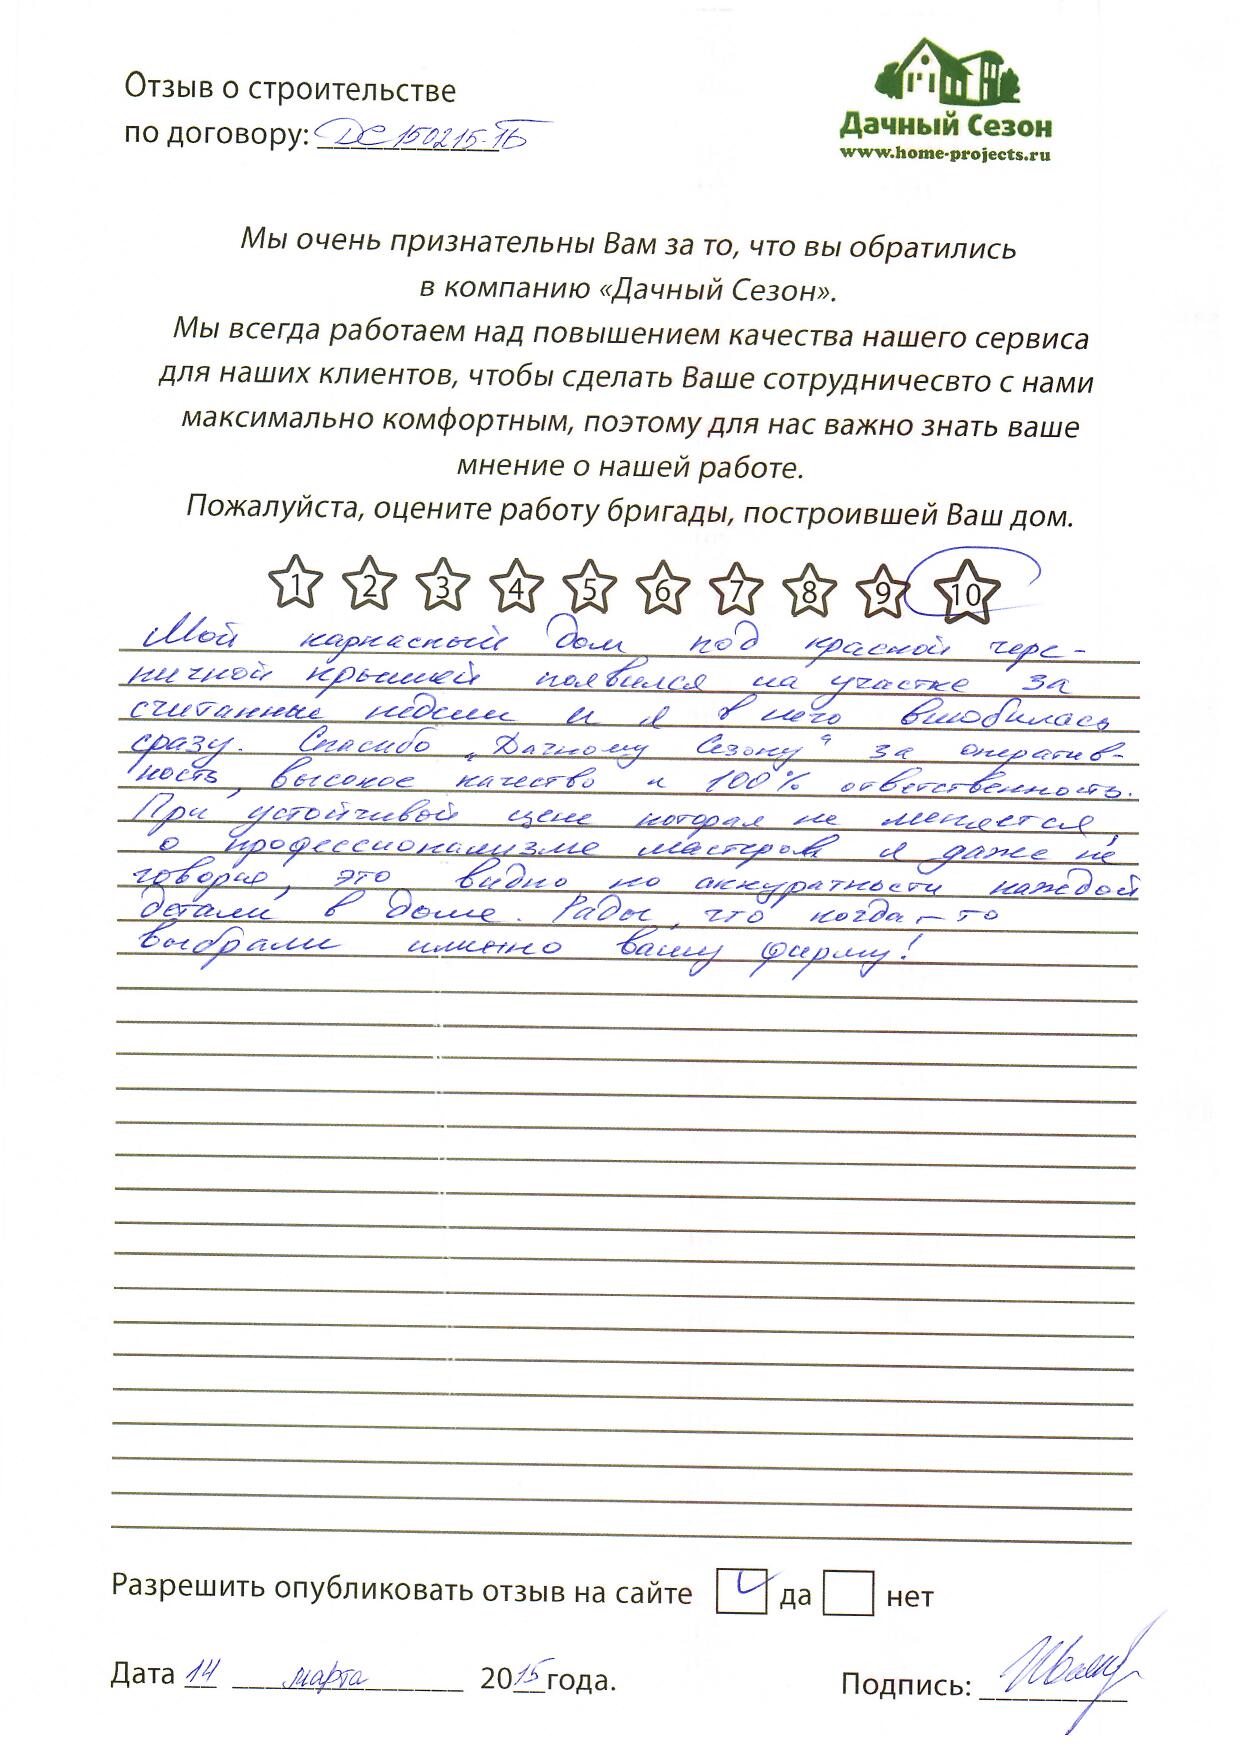 Отзыв о строительстве
по договору: ДС150215-1Б
Дачный Сезон
www.home-projects.ru
Мы очень признательны Вам за то, что вы обратились
в компанию «Дачный Сезон».
Мы всегда работаем над повышением качества нашего сервиса
для наших клиентов, чтобы сделать Ваше сотрудничесвто с нами
максимально комфортным, поэтому для нас важно знать ваше
мнение о нашей работе.
Пожалуйста, оцените работу бригады, построившей Ваш дом.
1 2 3 4 5 6 7 8 9 10
Мой каркасный дом под красной чере-
пичной крышей появился на участке за
считанные недели и я в него влюбилась
сразу. Спасибо „Дачному Сезону“ за оператив-
ность, высокое качество и 100% ответственность.
При устойчивой цене которая не меняется,
о профессионализме мастеров я даже не
говорю, это видно по аккуратности каждой
детали в доме. Рады, что когда-то
выбрали именно вашу фирму!
Разрешить опубликовать отзыв на сайте да нет
Дата 14 марта 2015 года.
Подпись: